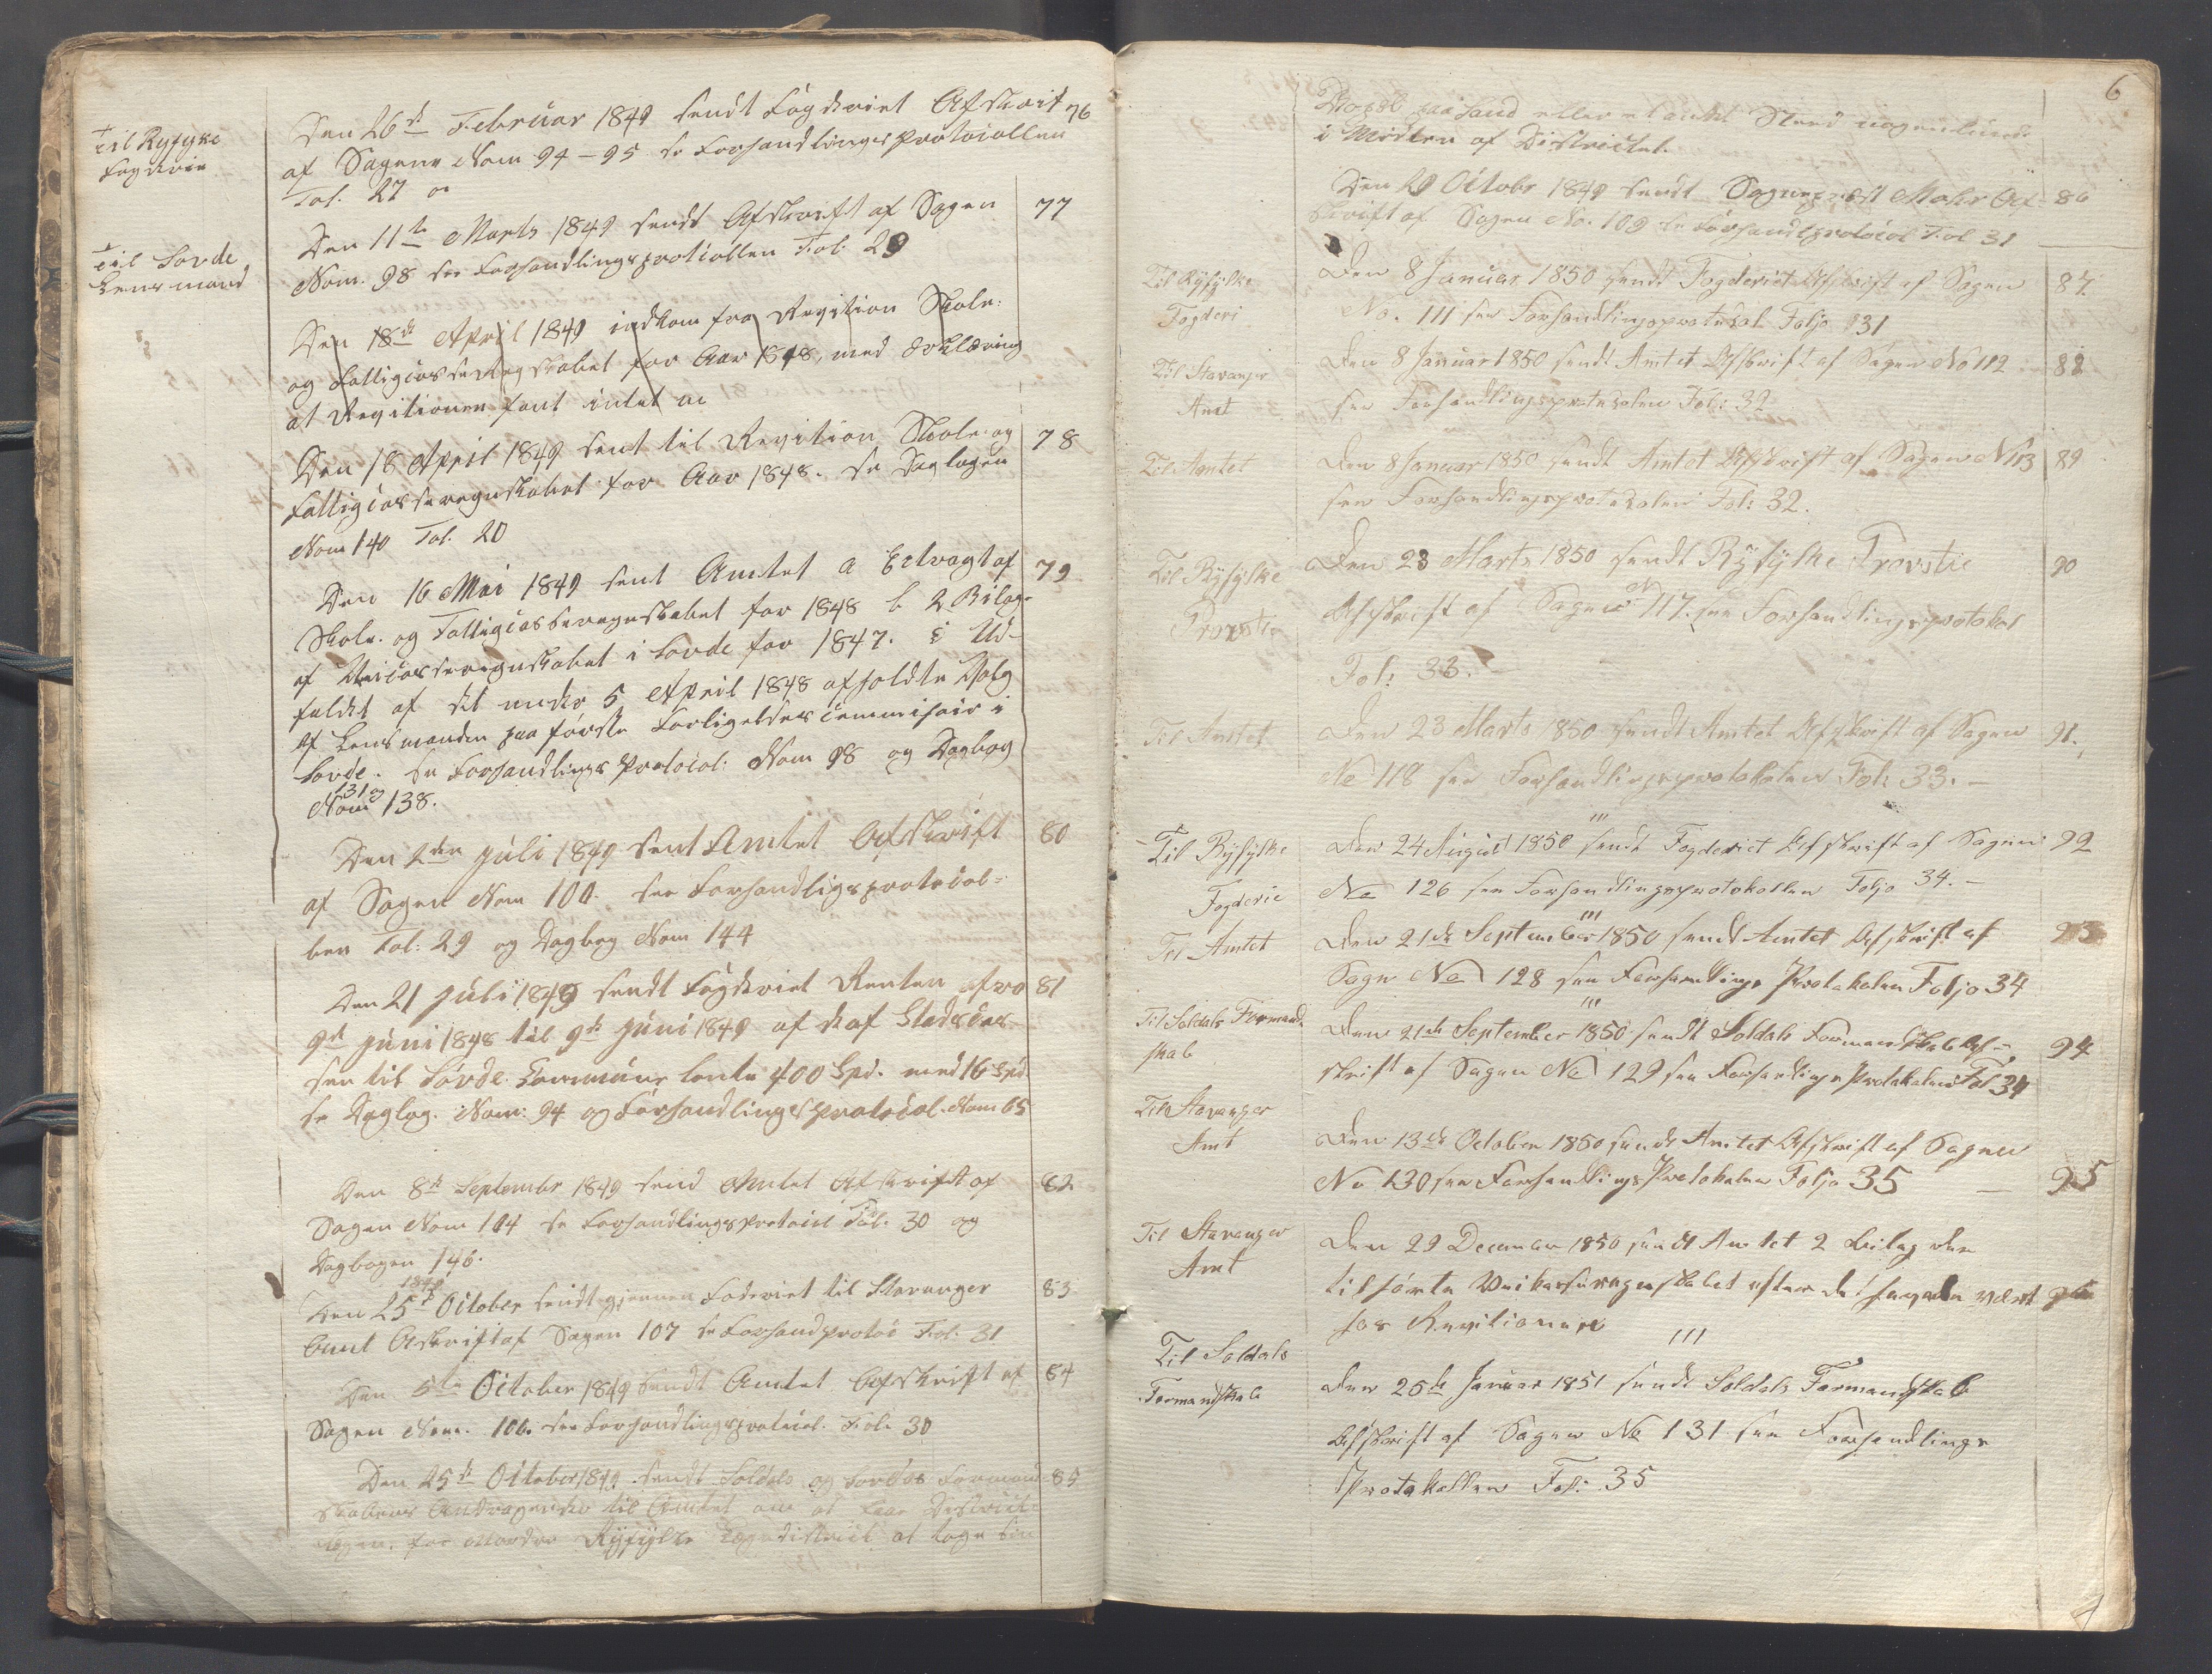 Til Ryfylke
Fogderie
Den 26de Februar 1849 sendt Fogderiet Afskrift 76
af Sagene Nom 94-95 se Forhandlingsprotocollen
Fol. 27
Til Sovde
Lensmand
Den 11te Marts 1849 sendt Afskrift af Sagen 77
Nom. 98 see Forhandlingsprotocollen Fol. 29
Den 18de April 1849 indkom fra Revition Skole-
og Fattigcasseregnskabet for Aar 1848, med Erklæring
at Revitionen fant intet
Den 18 April 1849 sent til Revition Skole og 78
Fattigcasseregnskabet for Aar 1848. se Dagbogen
Nom 140 Fol. 20
Den 16 Mai 1849 sent Amtet a Extragt af 79
Skole- og Fattigcasseregnskabet for 1848 b 2 Bilag
af Veicasseregnskabet i Sovde for 1847. c Ud-
faldet af det under 5 April 1848 afholdte Valg
af Lensmanden paa første Forligelsescommisair i
Sovde. se Forhandlings Protocol: Nom 98 og Dagbog
131 og
Nom 138.
Den 2den Juli 1849 sent Amtet Afskrift 80
af Sagen Nom 100. see Forhandligsprotocol-
len Fol: 29 og Dagbog Nom 144
Den 21 Juli 1849 sendt Fogderiet Renten af 81
9de Juni 1848 til 9de Juni 1849 af
sen til Sovde Commune laante 400 Spd. med 16 Spd.
se Dagbog. Nom: 94 og Forhandlingsprotocol. Nom 65
Den 8de Septembr 1849 send Amtet Afskrift af 82
Sagen Nom 104 se Forhandlingsprotocol Fol. 30 og
Dagbogen 146.
1849
Den 25de October sendt gjennem Foderiet til Stavanger 83
Amt Afskrift af Sagen 107 se Forhandprotoc Fol: 31
Den 5te October 1849 sendt Amtet Afskrift af 84
Sagen Nom. 106. see Forhandlingsprotocol. Fol. 30
Den 25de October 1849 sendt Soldals og Sovdes Formand- 85
skabers Andragender til Amtet om at faae Districts
Lægen for Nordre Ryfylke Lægedistrict at tage sin
6
Bopæl paa Sand eller et andet Sted nogenlunde
i Midten af Districtet.
Den 29 Octobr 1849 sendt Sognepræst Mohr Af- 86
skrift af Sagen No. 109 se Forhandlprotocol Fol 31
Til Ryfylke
Fogderi
Den 8 Januar 1850 sendt Fogderiet Afskrift af Sagen 87.
No. 111 see Forhandlingsprotokol Foljo 31
Til Stavanger
Amt
Den 8 Januar 1850 sendt Amtet Afskrift af Sagen No 112 88
see Forhandlingsprotokolen Fol: 32
Til Amtet
Den 8 Januar 1850 sendt Amtet Afskrift af Sagen N 113 89
see Forhandlingsprotokolen Fol: 32.
Til Ryfylke
Provstie
Den 23 Marts 1850 sendt Ryfylke Provstie 90
Afskrift af Sagen N 117. see Forhandlingsprotokol
Fol: 33.
Til Amtet
Den 23 Marts 1850 sendt Amtet Afskrift af Sagen 91.
No 118 see Forhandlingsprotokolen Fol: 33. -
Til Ryfylke
Fogderie
Den 24 August 1850 sendt Fogderiet Afskrift af Sagen 92
No 126 see Forhandlingsprotokollen Foljo 34. -
Til Amtet
Den 21de September 1850 sendt Amtet Afskrift af 93
Sagn No 128 see Forhandlings Protokolen Foljo 34
Til Soldals Formand-
skab
Den 21de September 1850 sendt Soldals Formandskab Af- 94
skrift af Sagen No 129 see Forhandlings Protokolen Fol 34
Til Stavanger
Amt
Den 13de October 1850 sendt Amtet Afskrift af Sagen
No 130 see Forhandlings Protokolen Foljo 35 - 95
Til Stavanger
Amt
Den 29 December 1850 sendt Amtet 2 Bilag der
tilhørte Veikasseregnskabet efter det havde vært 96
hos Revitionen
Til Soldals
Formandskab
Den 25de Januar 1851 sendt Soldals Formandskab
Afskrift af Sagen No 131 see Forhandlings
Protokollen Fol: 35